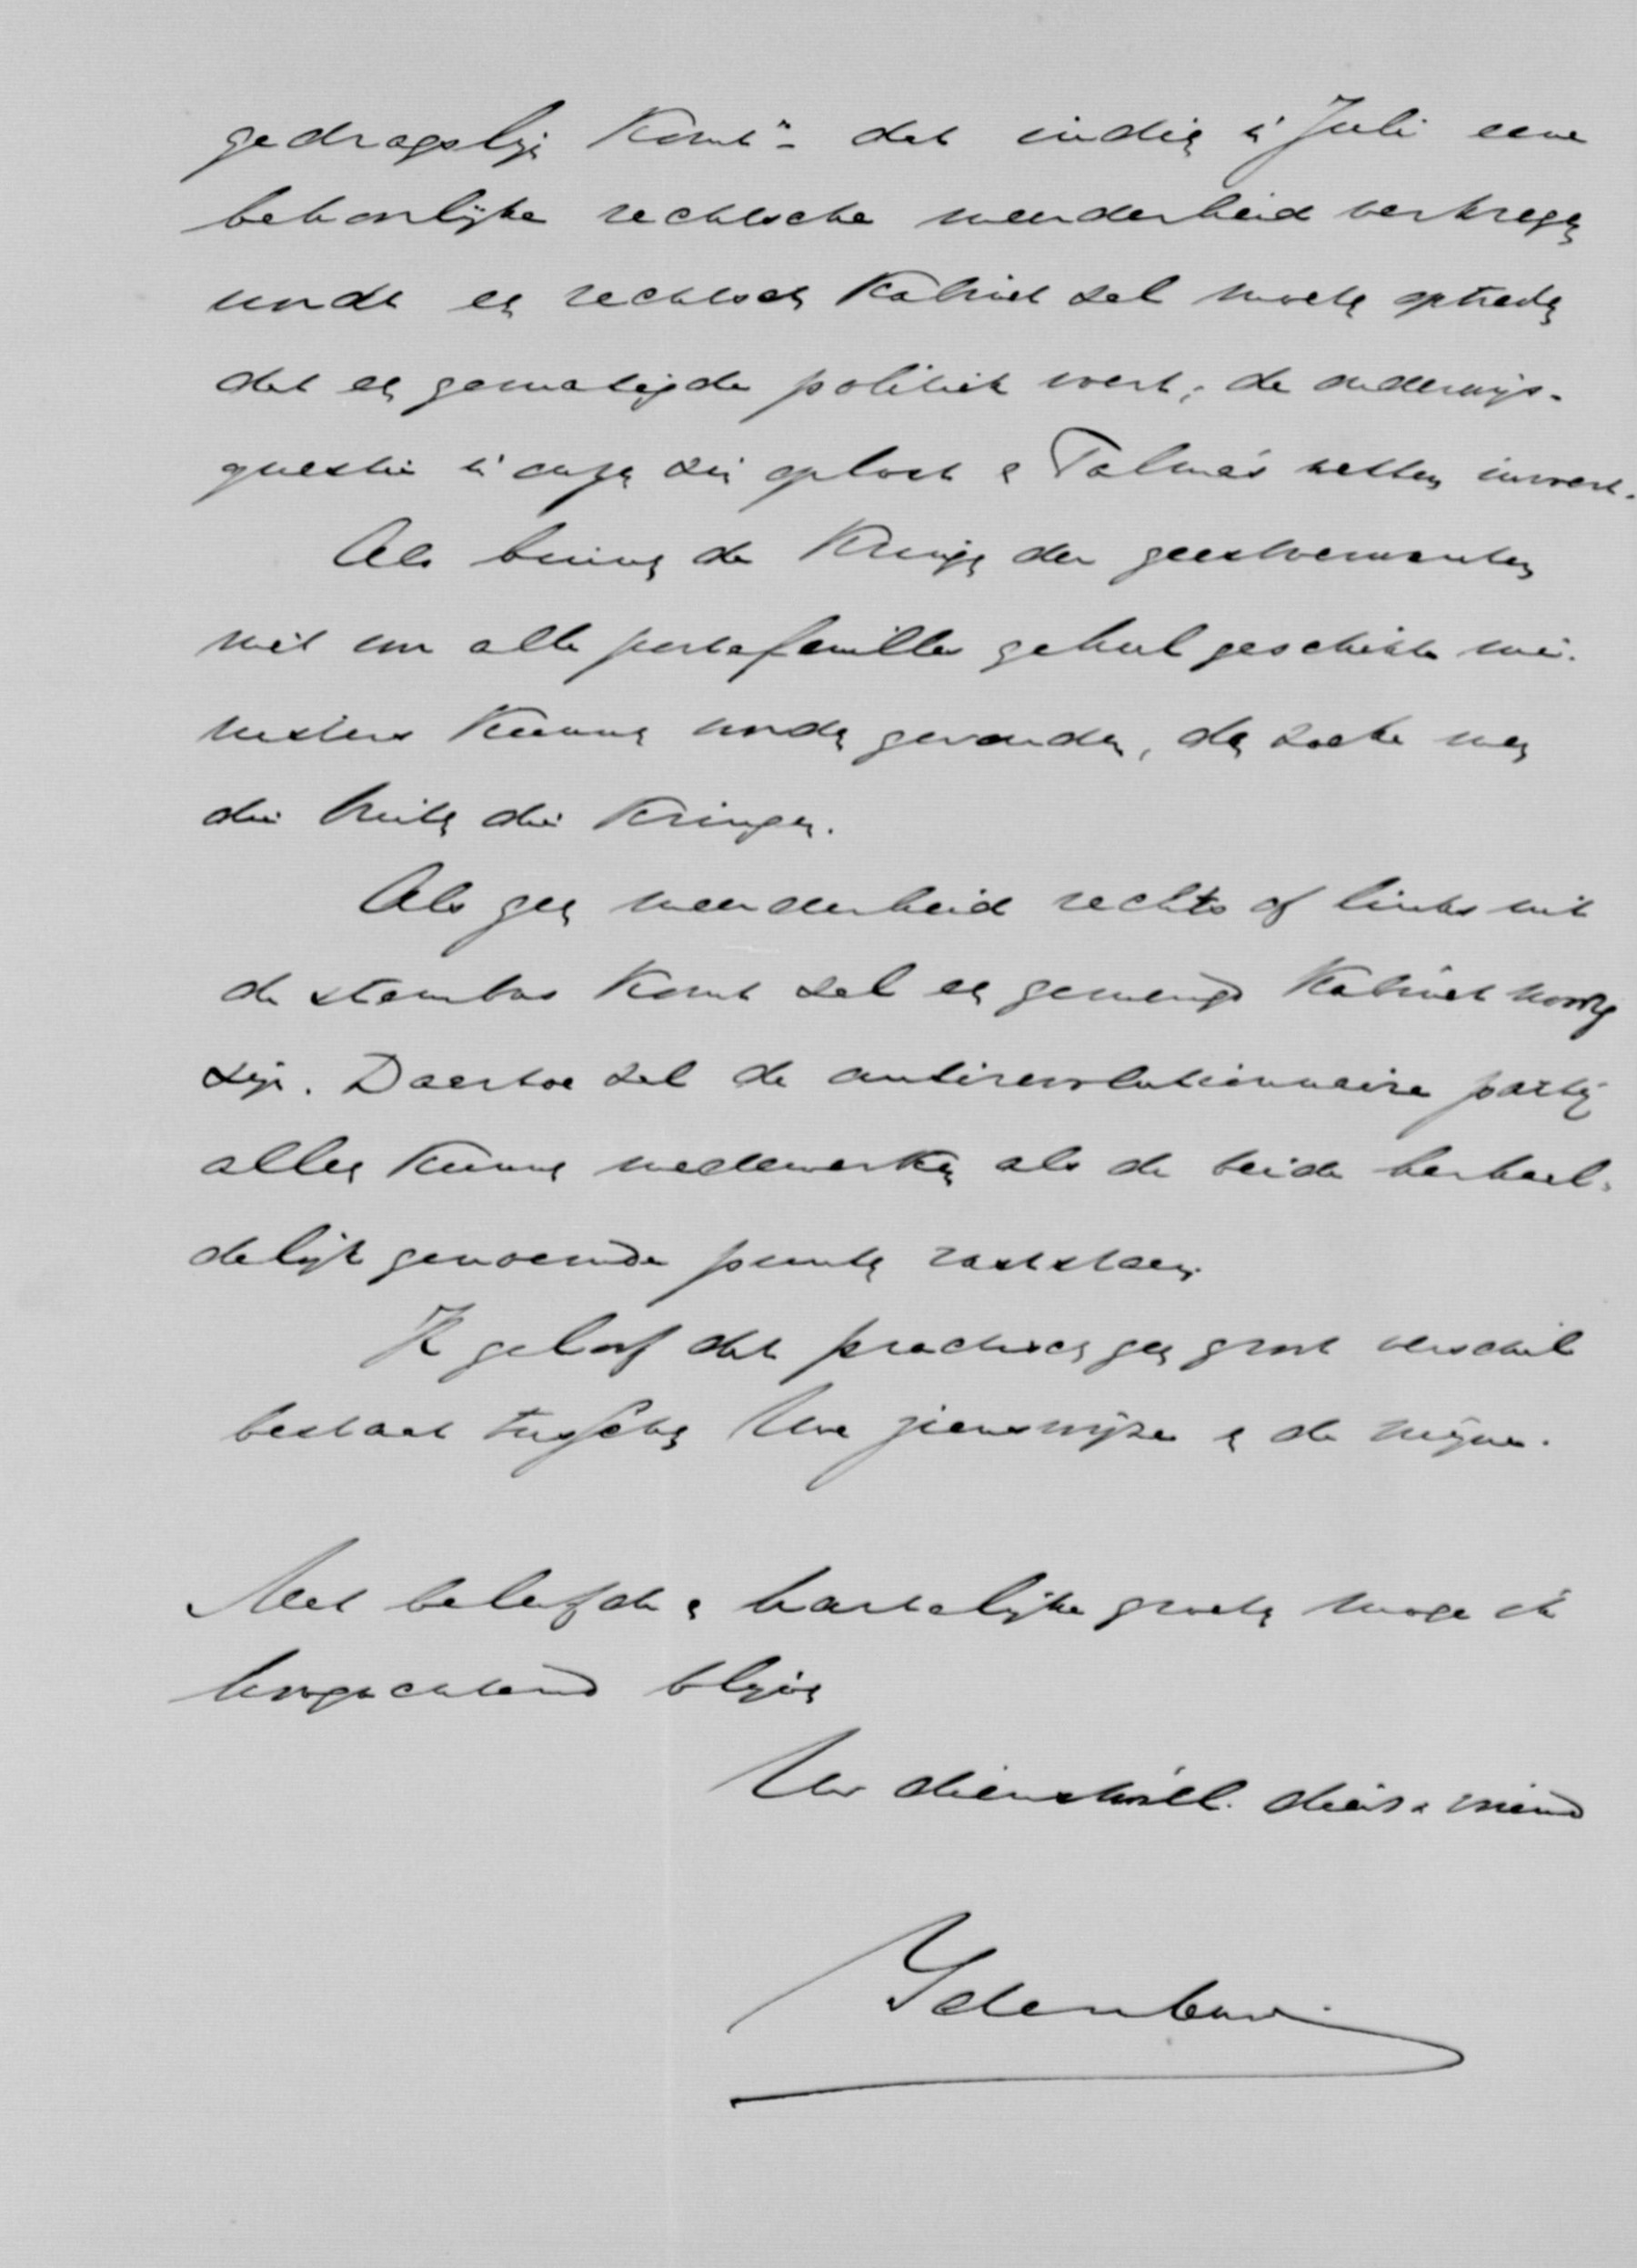 gedragslijn komt - dat indien in Juli eene
behoorlijke rechtsche meerderheid verkregen
wordt een rechtsch Kabinet zal moeten optreden
dat een gematigde politiek voert, de onderwijs-
questie in onzen zin oplost en Talma's wetten invoert.
Als binnen de Kringen der geestverwanten
niet voor alle portefeuilles geheel geschikte mi-
nisters kunnen worden gevonden, dan zoeke men
die buiten die Kringen.
Als geen meerderheid rechts of links uit
de stembus komt zal een gemengd Kabinet noodig
zijn. Daertoe zal de antirevolutionnaire partij
alleen kunnen medewerken als de beide herhaal-
delijk genoemde punten vaststaan.
Ik geloof dat practisch geen groot verschil
bestaat tusschen Uwe zienswijze en de mijne.
Met beleefde en hartelijke groeten moge ik
hoogachtend blijven
Uw dienstwill. dien. vriend
Idenburg